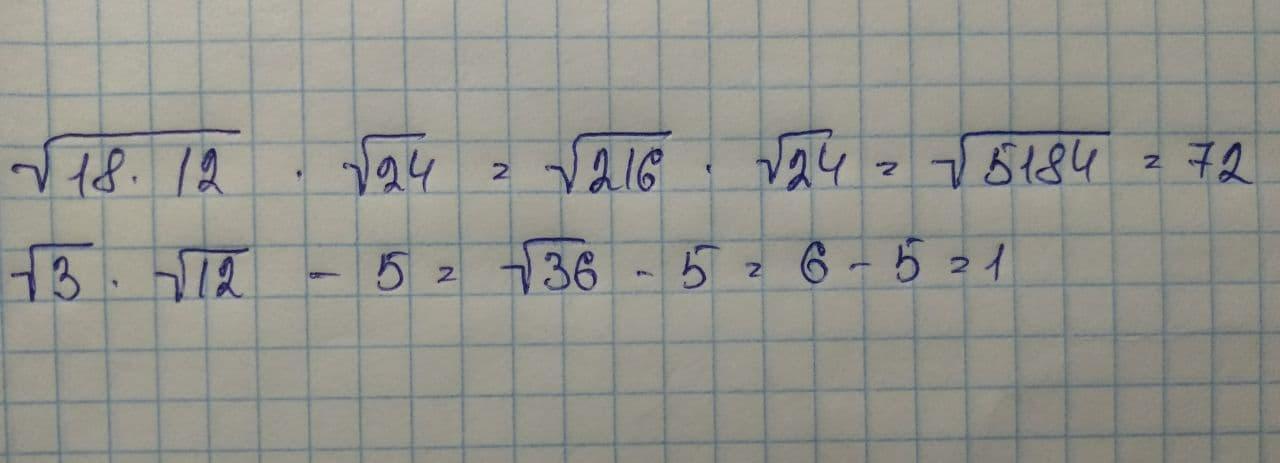 √18· 12 · √24 = √216 · √24 = √5184 = 72
√3 · √12 - 5 = √36 - 5 = 6 - 5 = 1